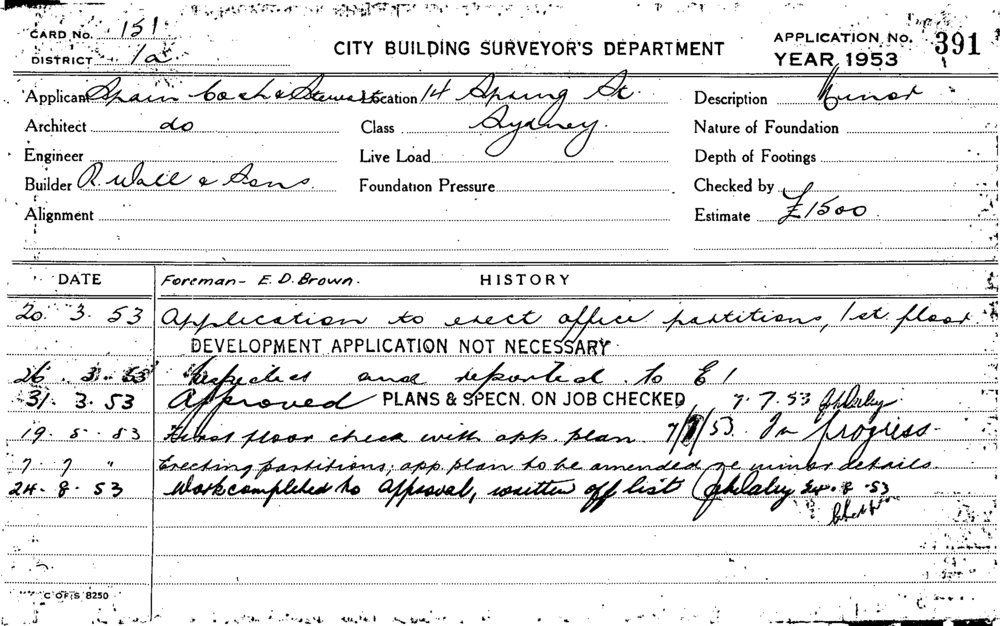 CARD No. 151
DISTRICT 1a
CITY BUILDING SURVEYOR'S DEPARTMENT
APPLICATION No. 391
YEAR 1953
Applicant Spain Cosh & Stewart Location 14 Spring St. Description Minor
Architect do Class Sydney. Nature of Foundation
Engineer Live Load Depth of Footings
Builder R. Wall & Sons. Foundation Pressure Checked by
Alignment Estimate £1500
DATE Foreman - E. D. Brown. HISTORY
20. 3. 53 Application to erect office partitions, 1st floor.
DEVELOPMENT APPLICATION NOT NECESSARY
26. 3. 53 Inspected and reported to E1
31. 3. 53 Approved PLANS & SPECN. ON JOB CHECKED 7.7.53
19. 5. 53 First floor check with app. plan 7/7/53. In progress.
7 7 " Erecting partitions; app. plan to be amended re minor details.
24. 8. 53 Work completed to approval, written off list 24. 8. 53
C OF S 8250